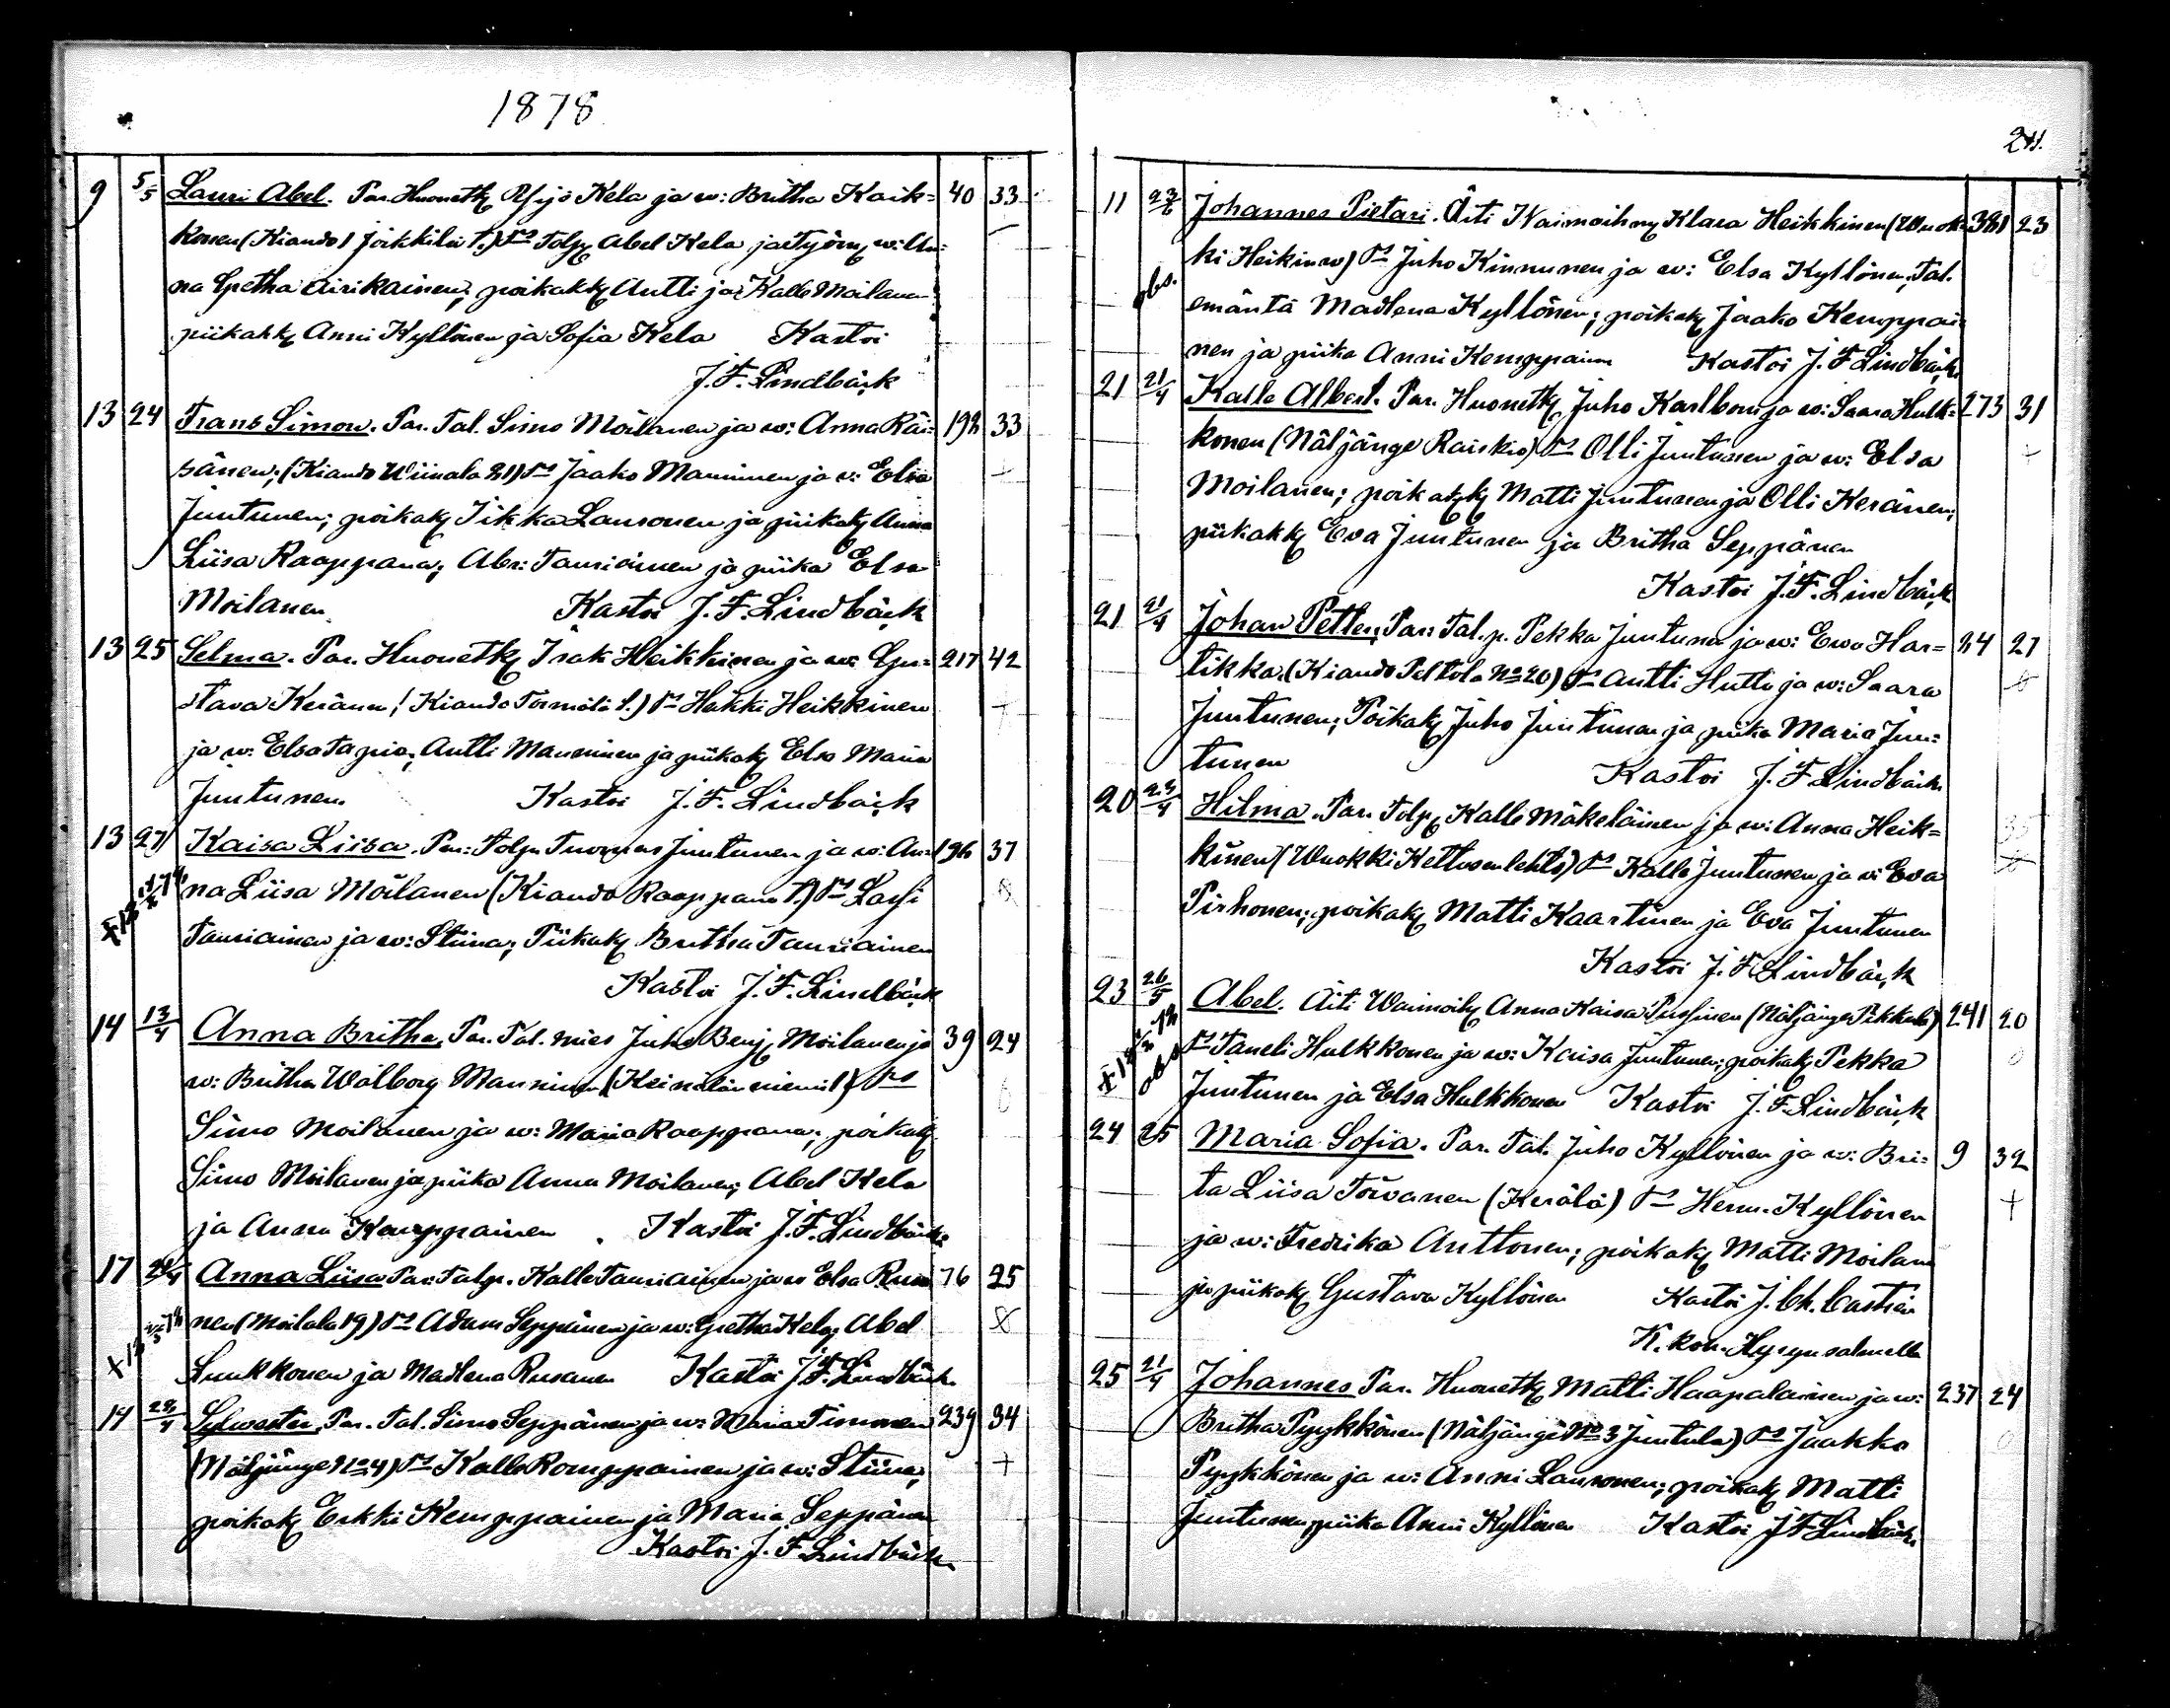 1878
9 5/5 Lauri Abel. Par. Huonetk Yrjö Kela ja w: Britha Kaik= 40 33
konen (Kiando 1 Joikkila t.) Ts Tolp Abel Kela ja työm w: An-
na Gretha Airikainen; poikakk Antti ja Kalle Moilanen
piikakk Anni Kyllönen ja Sofia Kela Kastoi
J. F. Lindbäck
13 24 Frans Simon. Par. Tal. Simo Moilanen ja w: Anna Räi= 192 33
sänen; (Kiando Wiinala 21) Ts Jaako Manninen ja w: Elsa
Juntunen; poikak Iikka Lauronen ja piikak Anna
Liisa Raappana; Abr: Tauriainen ja piika Elsa
Moilanen. Kastoi J. F. Lindbäck
13 25 Selma. Par. Huonetk Isak Heikkinen ja w: Gus= 217 42
tava Keränen (Kiando Törmälä t.) Ts Heikki Heikkinen
ja w: Elsa Tapio; Antti Manninen ja piikak Elsa Maria
Juntunen Kastoi J. F. Lindbäck
13 27 Kaisa Liisa. Par: Tolp. Tuomas Juntunen ja w: An= 196 37
na Liisa Moilanen (Kiando Raappana t.) Ts Lassi
Tauriainen ja w: Stiina; Piikak Britha Tauriainen
Kastoi J. F. Lindbäck
14 13/4 Anna Britha. Par. Tal. mies Juho Benj. Moilanen ja 39 24
w: Britha Walborg Manninen (Keinälän niemi 1) Ts
Simo Moilanen ja w: Maria Raappana; poikak
Simo Moilanen ja piika Anna Moilanen; Abel Kela
ja Anna Kemppainen. Kastoi J. F. Lindbäck
17 Anna Liisa Par: Talp. Kalle Tauriainen ja w Elsa Rusa 76 25
nen (Moilala 19) Ts Adam Seppänen ja w: Gretha Kela; Abel
Luukkonen ja Madlena Rusanen Kastoi J. F. Lindbäck
14 Sylwester. Par. Tal. Simo Seppänen ja w: Maria Timonen 239 34
(Näljänge No 4) Ts Kalle Romppainen ja w: Stiina;
poikak Erkki Kemppainen ja Maria Seppänen
Kastoi J. F. Lindbäck
11 Johannes Pietari. Äiti Waimoihm Klara Heikkinen (Wuok= 23
ki Heikinw) Ts Juho Kinnunen ja w: Elsa Kyllönen, Tal.
obs. emäntä Madlena Kyllönen; poikak Jaako Kemppai=
nen ja piika Anni Kemppainen Kastoi J. F. Lindbäck
21 21/4 Kalle Albert. Par. Huonetk Juho Karlbom ja w: Saara Hulk= 273 31
konen (Näljänge Raiskio) Ts Olli Juntunen ja w: Elsa
Moilanen; poikakk Matti Juntunen ja Olli Keränen;
piikakk Eva Juntunen ja Britha Seppänen
Kastoi J. F. Lindbäck
21 21/4 Johan Petter. Par: Tal. p. Pekka Juntunen ja w: Ewa Har= 24 27
tikka (Kiando Peltola No 20) Ts Antti Hutti ja w: Saara
Juntunen; Poikak Juho Juntunen ja piika Maria Jun=
tunen Kastoi J. F. Lindbäck
20 Hilma. Par. Tolp. Kalle Mäkeläinen ja w: Anna Heik= 35
kinen (Wuokki Kettusenlehto) Ts Kalle Juntunen ja w: Eva
Pirhonen; poikak Matti Kaartinen ja Eva Juntunen
Kastoi J. F. Lindbäck
23 26/5 Abel. Äiti Waimoih Anna Kaisa (Näljänge Pikkala) 241 20
obs Ts Taneli Hulkkonen ja w: Kaisa Juntunen; poikak Pekka
Juntunen ja Elsa Hulkkonen Kastoi J. F. Lindbäck
24 25 Maria Sofia. Par. Tal. Juho Kyllönen ja w: Bri= 9 32
ta Liisa Toivanen (Kerälä) Ts Herm. Kyllönen
ja w: Fredrika Anttonen; poikak Matti Moilanen
ja piikak Gustava Kyllönen Kastoi J. Ch. Castrén
K. koh. Hyrynsalmella
25 21/4 Johannes Par. Huonetk Matti Haapalainen ja w: 237 24
Britha Pyykkönen (Näljänge No 3 Juntula) Ts Jaakko
Pyykkönen ja w: Anni Lauronen; poikak Matti
Juntunen, piika Anni Kyllönen Kastoi J F Lindbäck